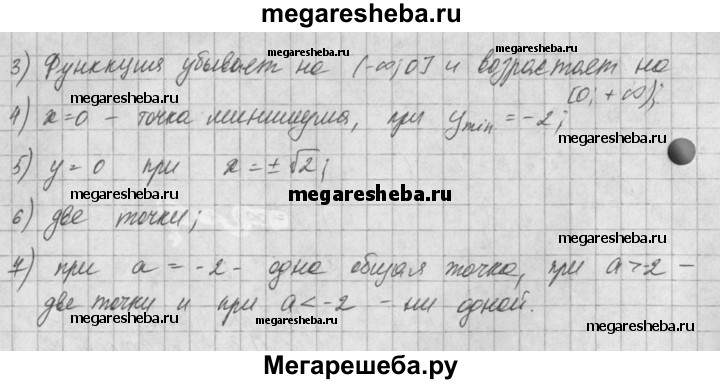 megaresheba.ru
3) Функкция убывает на (-∞; 0] и возрастает на
megaresheba.ru megaresheba.ru
megaresheba.ru [0; +∞);
4) x=0 – точка минимума, при y min = -2;
megaresheba.ru
5) y=0 при x=±√2;
megaresheba.ru megaresheba.ru
6) две точки;
megaresheba.ru megaresheba.ru
7) при a = -2 - одна общая точка, при a>2 –
megaresheba.ru
две точки и при a<-2 – ни одной.
megaresheba.ru megaresheba.ru megaresheba.ru
Мегарешеба.ру